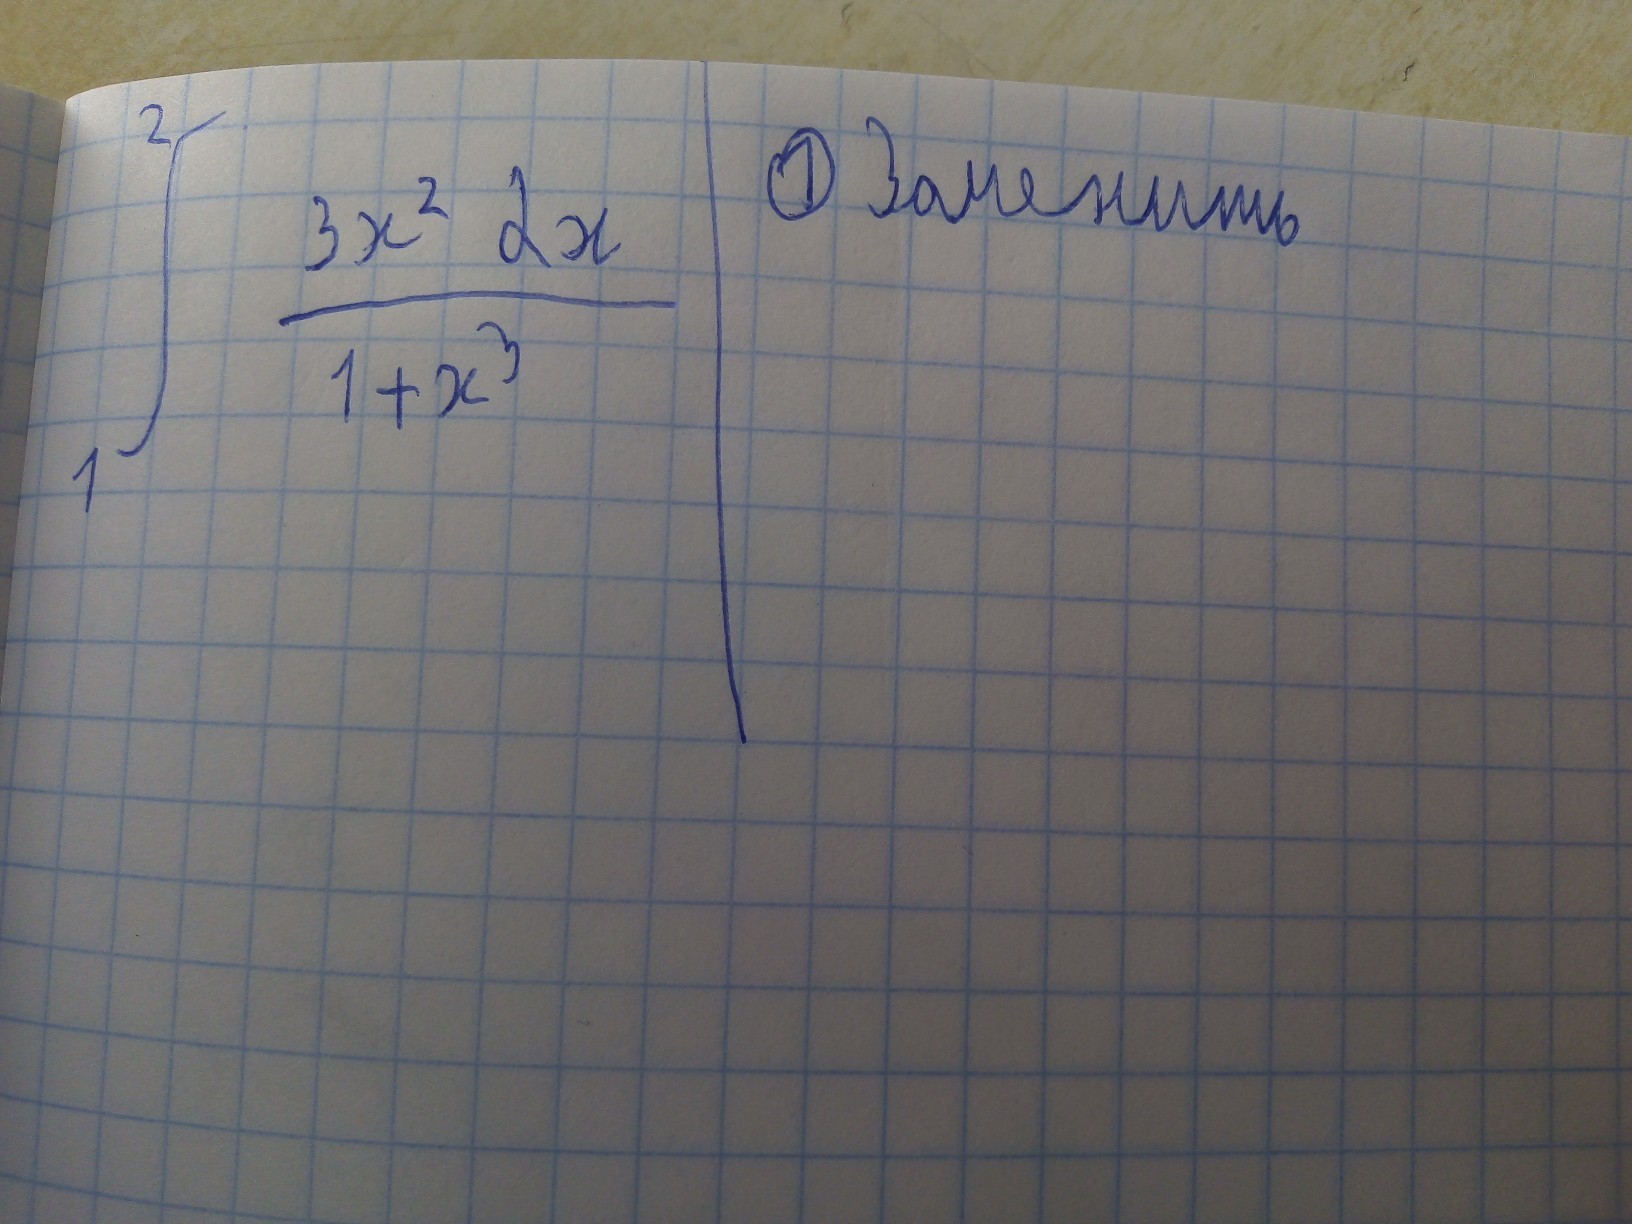 2
∫ 3x² dx
1+x³
1
① Заменить